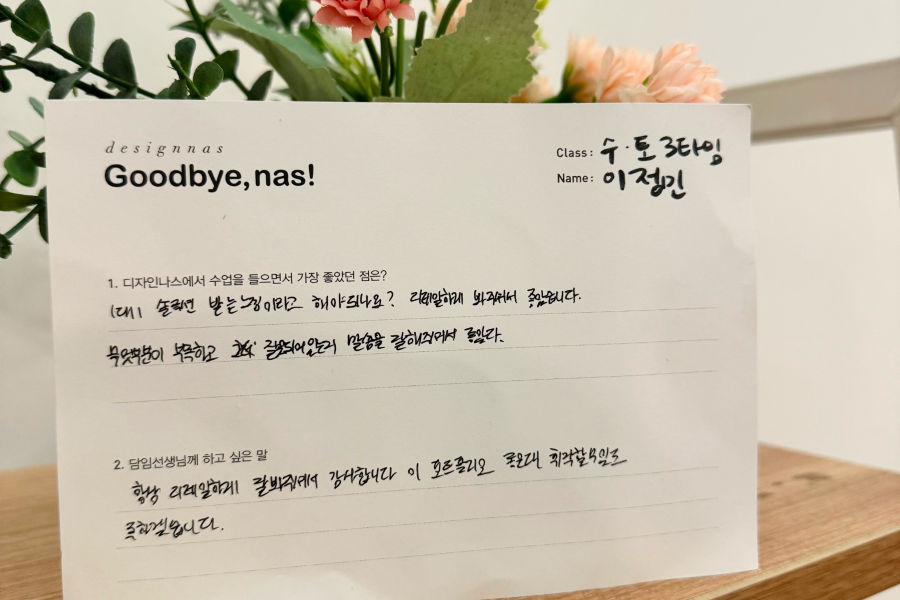 designnas
Goodbye, nas!
Class: 수·토 3타임
Name: 이정민
1. 디자인나스에서 수업을 들으면서 가장 좋았던 점은?
1대1 솔루션 받는 느낌이라고 해야되나요? 디테일하게 봐주셔서 좋았습니다.
무엇부분이 부족하고 잘못되어있는지 말씀을 잘해주셔서 좋았다.
2. 담임선생님께 하고 싶은 말
항상 디테일하게 잘봐주셔서 감사합니다 이 포트폴리오 좋은대 취직할수있도